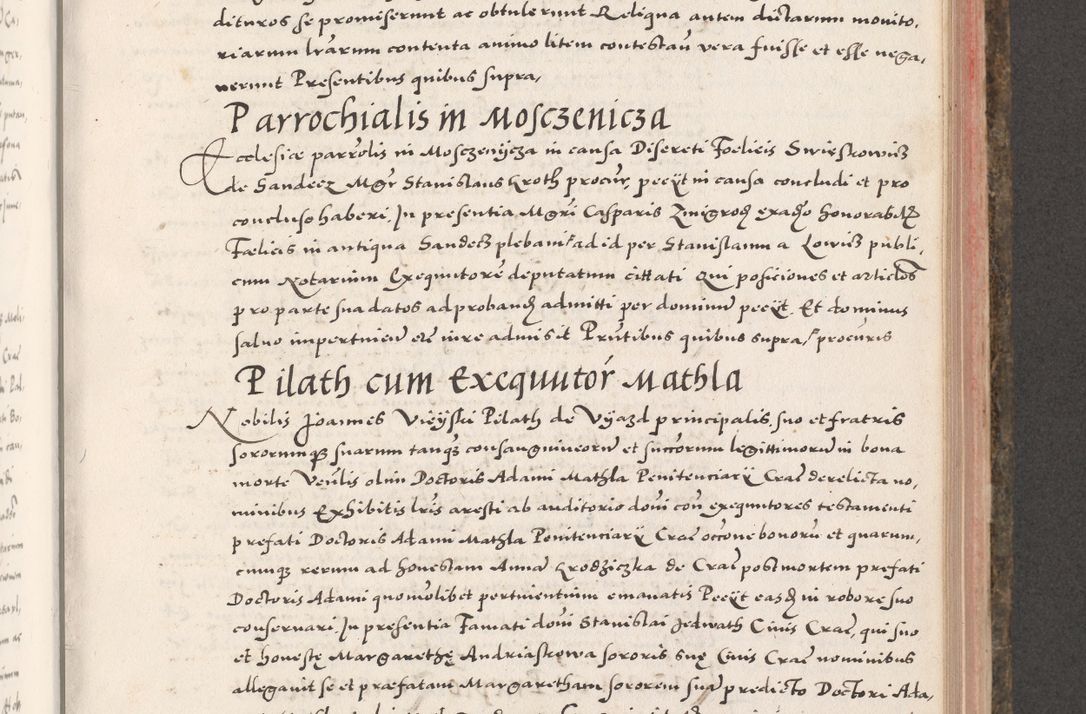 dituros se promiserunt ac obtulerunt Reliqua autem dictarum monito,
riarum lrarum contenta animo litem contestan vera fuisse et esse nega,
verunt Presentibus quibus supra,
Parrochialis in Mosczenicza
Ecclesiæ parrolis in Mosczenycza in causa Discreti Foelicis Swieskowicz
de Sandecz Mgr Stanislaus Kroth procur, pecyt in causa concludi et pro
concluso haberi, In presentia Mgri Casparis Zmigrod exadso honorab
Fælicis in antiqua Sandecz plebani ad id per Stanislaum a Lowicz publi,
cum Notarium Exequutore deputatum cittati Qui posiciones et articlos
pro parte sua datos ad proband admitti per dominu pecyt. Et dominus
salvo impertinen ere iure admisit Prntibus quibus supra, procuris
Pilath cum Exequutor Mathla
Nobilis Joannes Vieyski Pilath de Vyazd principalis, suo et fratris
sororumq suarum tanq consanguineoru et succorum legittimoru in bona
morte Venlis olim Doctoris Adami Mathla Penitenciary Crac derelicta no,
minibus Exhibitis lris aresti ab auditorio doni con exequutores testamenti
prefati Doctoris Adami Mathla Penitenciary Crac occone bonoru et quarum,
cumq rerum ad honestam Anna Krodziczka de Crac post mortem prefati
Doctoris Adami quomolibet pertinentium emanatis Pecyt easd in robore suo
conservari, In presentia Famati doni Stanislai Jedwath Civis Crac, qui suo
et honestę Margarethę Andriaskowa sororis suę Civis Crac nominibus
allegavit se et præfatam Margaretham sororem sua predicto Doctori Ada,